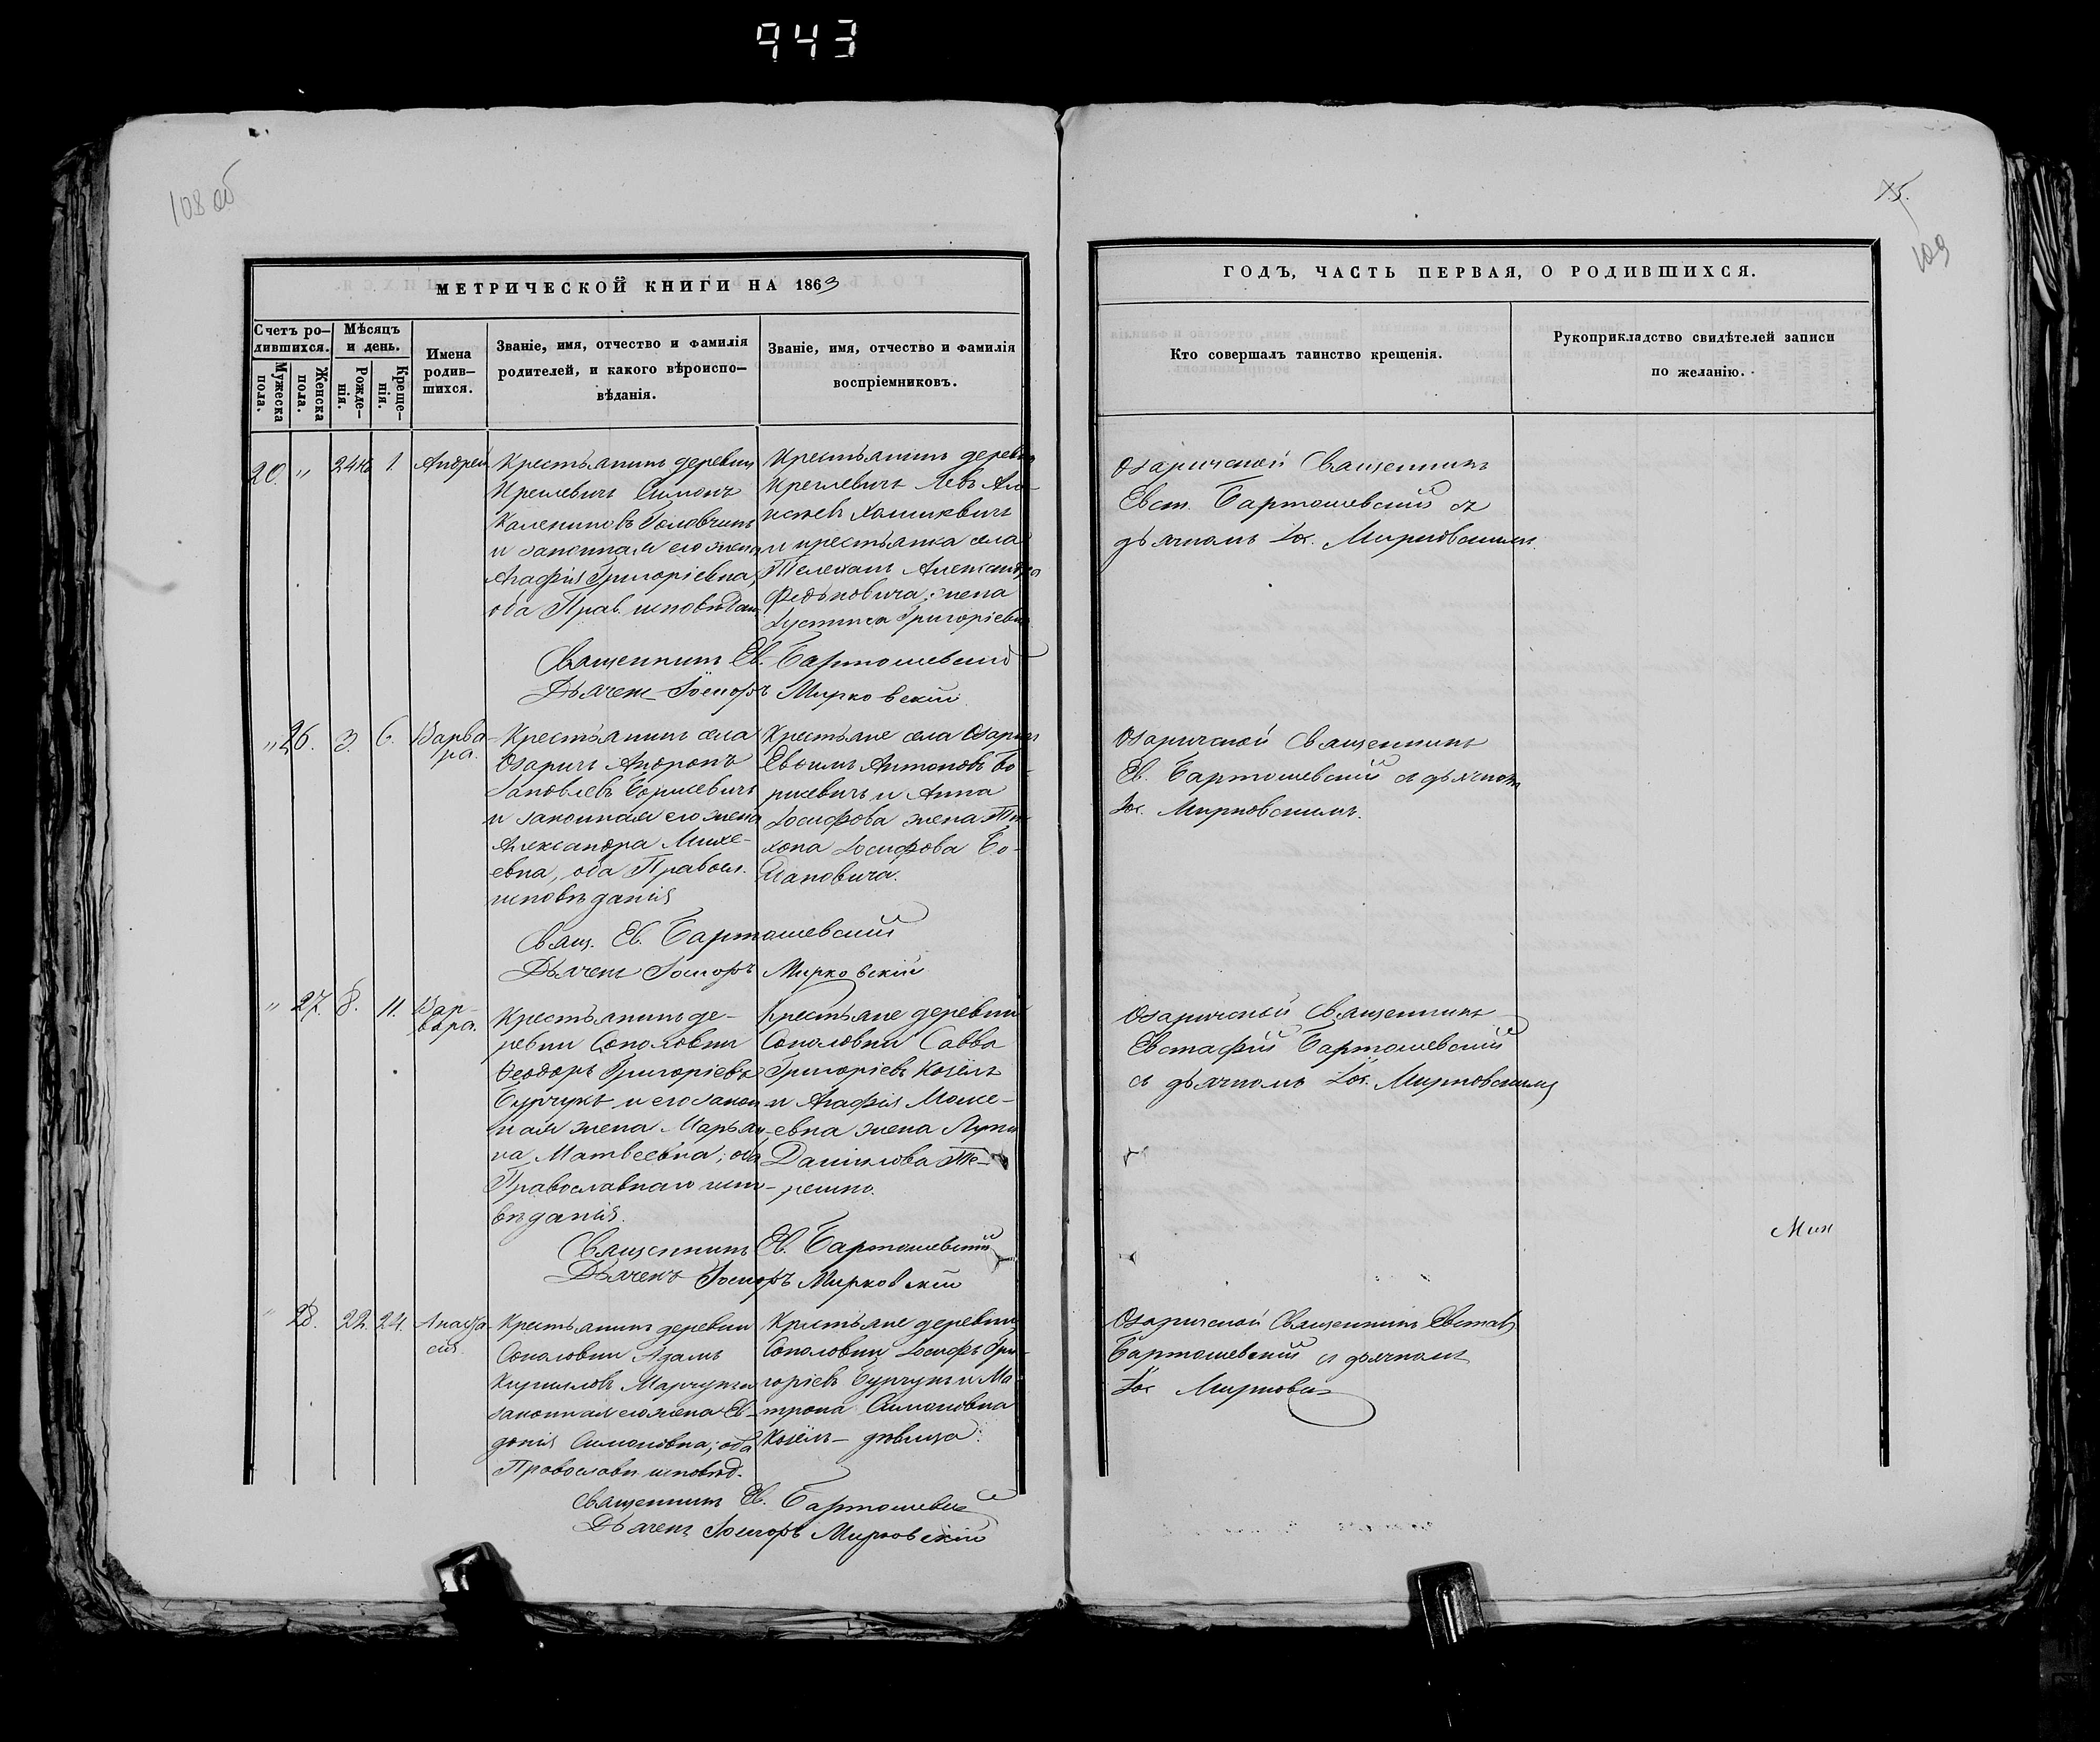 943
108 об
75.
109
МЕТРИЧЕСКОЙ КНИГИ НА 1863
Счетъ ро-
дившихся.
Мужеска
пола.
Женска
пола.
Мѣсяцъ
и день.
Рожде-
нія.
Креще-
нія.
Имена
родив-
шихся.
Званіе, имя, отчество и фамилія
родителей, и какого вѣроиспо-
вѣданія.
Званіе, имя, отчество и фамилія
воспріемниковъ.
20. " 1. Андрей
Крестьянинъ деревни
Кремевичъ Симонъ
Головчинъ
и законная его жена
Агафія Григоріевна,
оба Прав. исповѣдан.
Крестьянинъ деревни
Кремевичъ Левъ
и крестьянка села
Телеханъ Александра
Федьковича жена
Іустина Григоріевна
Священникъ Ев. Бартошевскій
Дьячекъ Іосифъ Мирковскій
" 26. 3. 6. Варва-
ра.
Крестьянинъ села
Озаричъ Андронъ
Яковлевъ Борисевичъ
и законная его жена
Александра Михе-
евна, оба Правосл.
исповѣданія
Крестьяне села Озаричъ
Евѳимъ Антоновъ Бо-
рисевичъ и Анна
Іосифова жена Ти-
хона Іосифова Бо-
Свящ. Ев. Бартошевскій
Дьячекъ Іосифъ Мирковскій
" 27. 8. 11. Вар-
вара.
Крестьянинъ де-
ревни Соколовки
Ѳеодоръ Григоріевъ
Бурчукъ и его закон-
ная жена Марья-
на Матвеевна; оба
Православнаго испо-
вѣданія.
Крестьяне деревни
Соколовки Савва
Григоріевъ Козелъ
и Агафія Моисе-
евна жена Луки
Данилова Те-
решко.
Священникъ Ев. Бартошевскій
Дьячекъ Іосифъ Мирковскій
" 28. 22. 24. Анаста-
сія.
Крестьянинъ деревни
Соколовки Адамъ
Кирилловъ Марчукъ и
законная его жена Ев-
докія Симоновна; оба
Православн. исповѣд.
Крестьяне деревни
Соколовки Іосифъ Гри-
горіевъ Бурчукъ и Ма-
трона Симоновна
Козелъ - дѣвица.
Священникъ Ев. Бартошевскій
Дьячекъ Іосифъ Мирковскій
ГОДЪ, ЧАСТЬ ПЕРВАЯ, О РОДИВШИХСЯ.
Кто совершалъ таинство крещенія.
Рукоприкладство свидѣтелей записи
по желанію.
Озаричской Священникъ
Евст. Бартошевскій съ
дьячкомъ Іос. Мирковскимъ.
Озаричской Священникъ
Ев. Бартошевскій съ дьячкомъ
Іос. Мирковскимъ.
Озаричской Священникъ
Евстафій Бартошевскій
съ дьячкомъ Іос. Мирковскимъ
Озаричской Священникъ Евстаф.
Бартошевскій съ дьячкомъ
Іос Мирковск